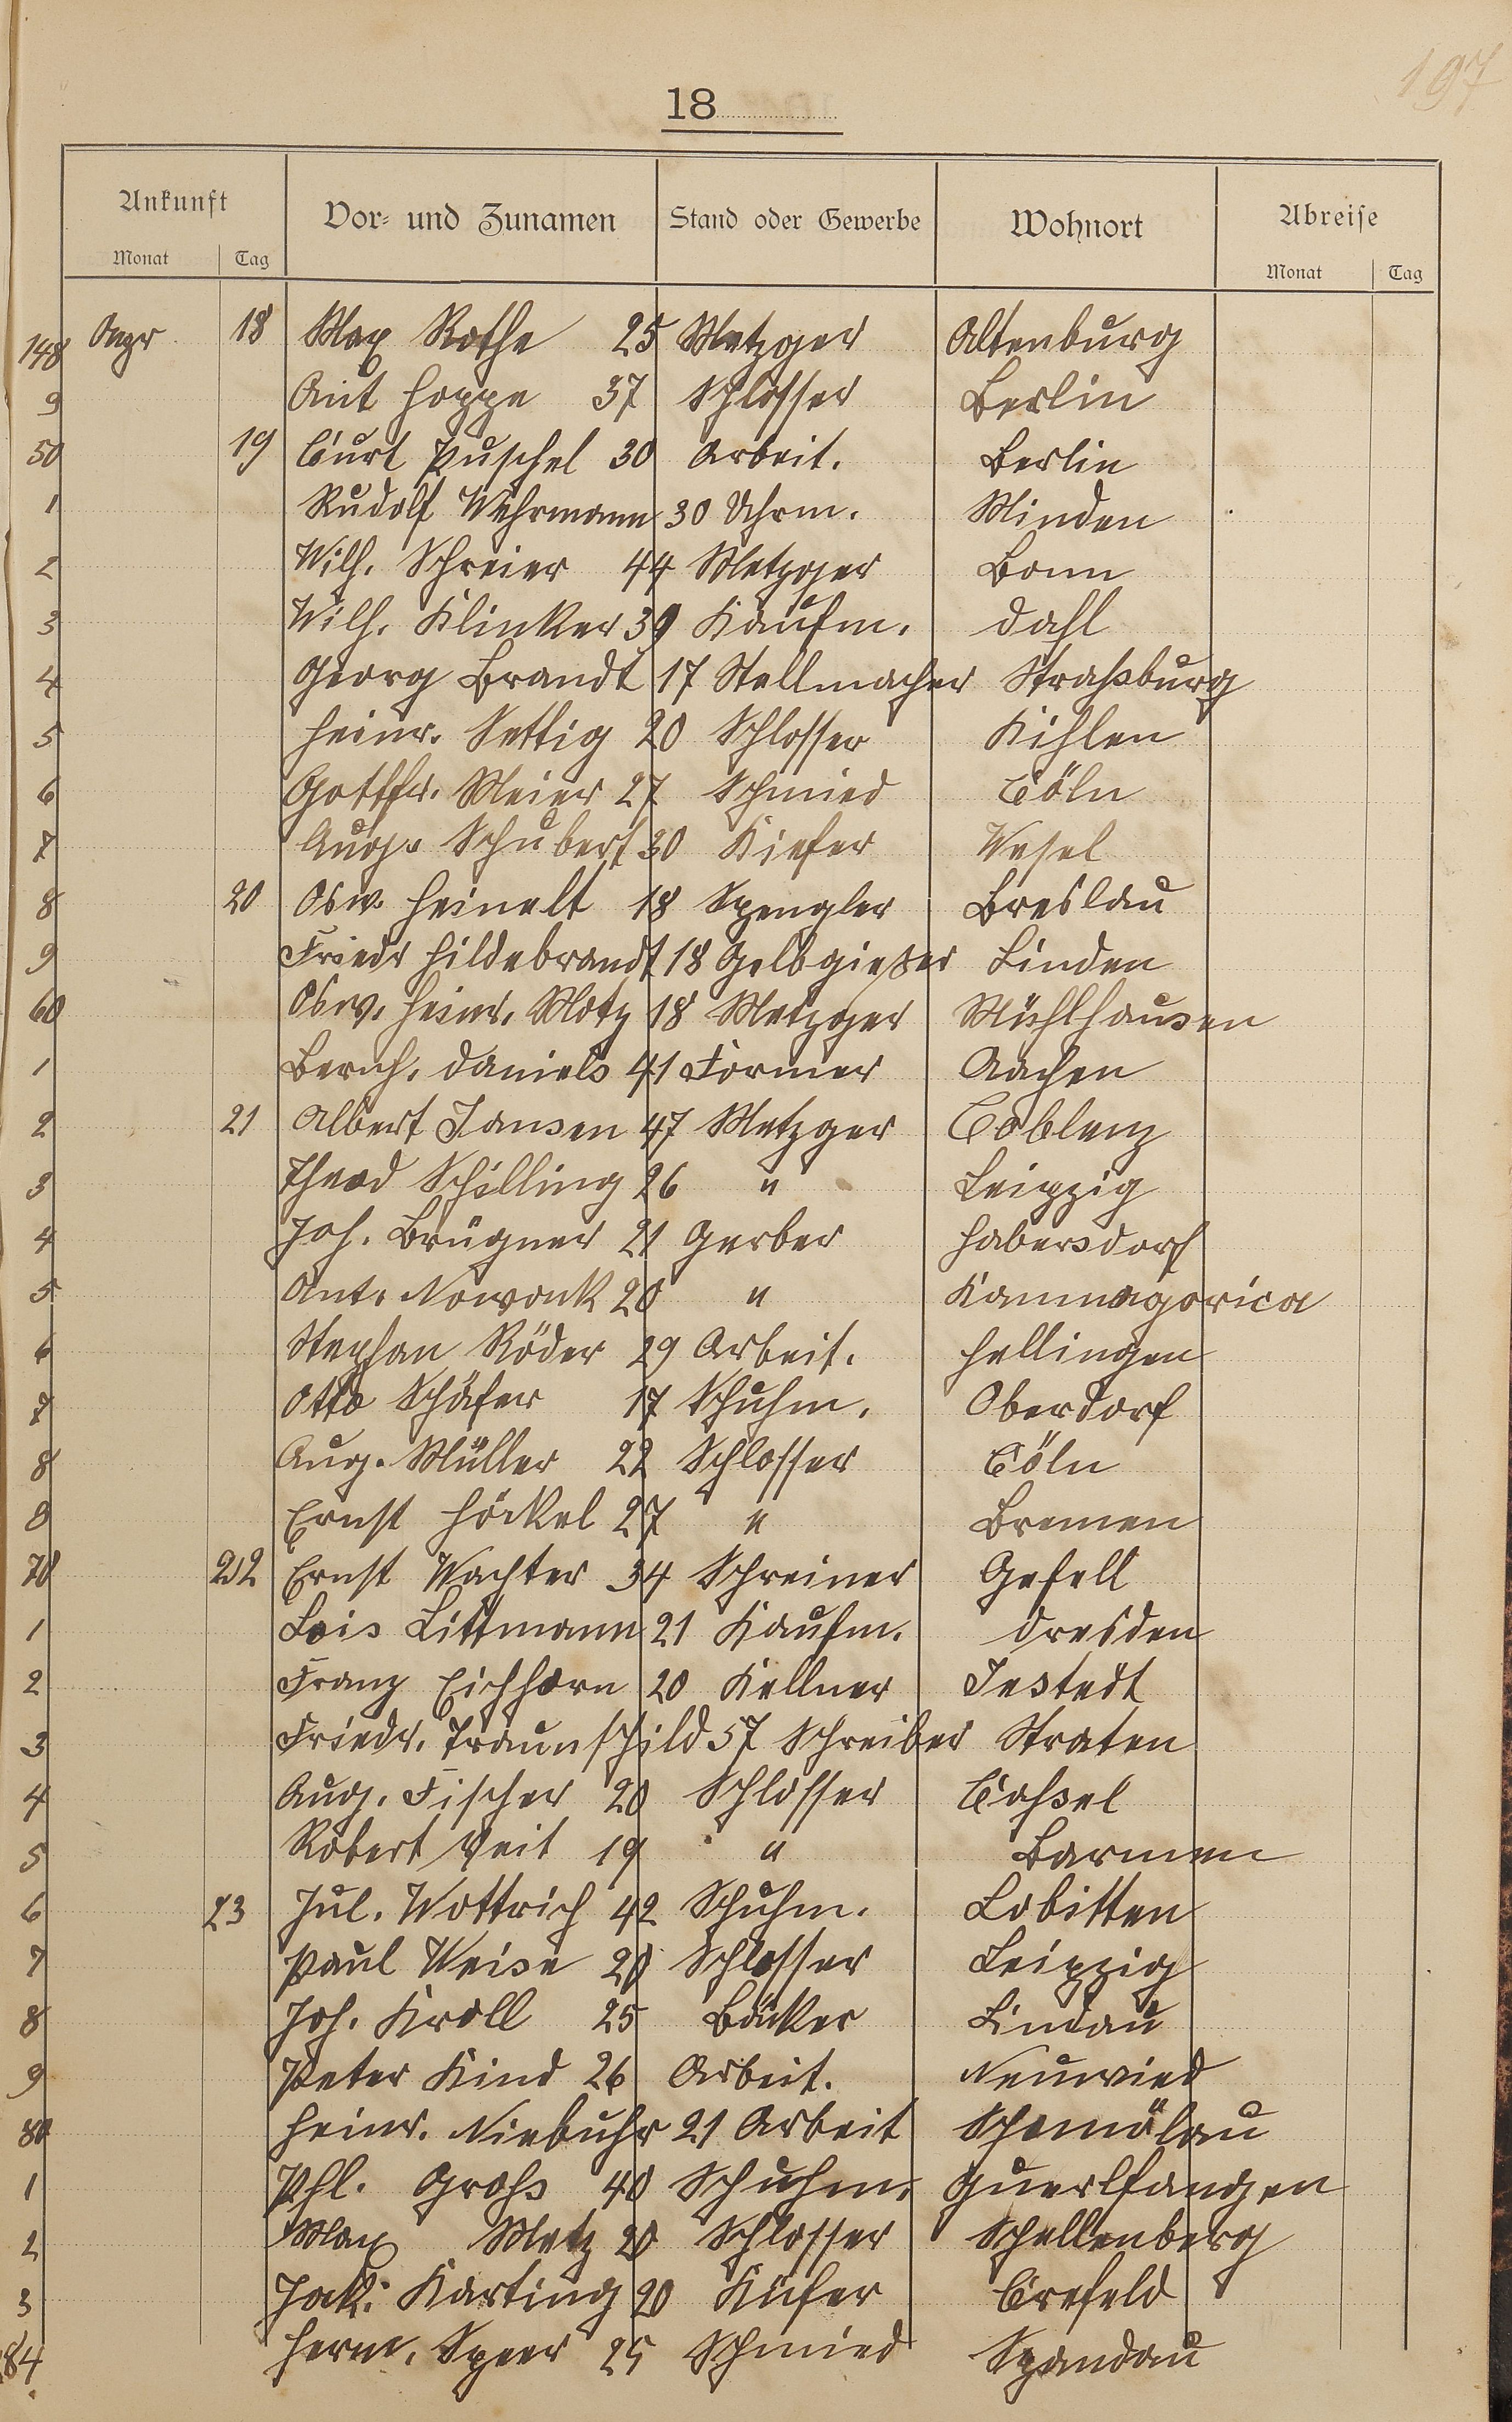 197
18
Ankunft Vor- und Zunamen Stand oder Gewerbe Wohnort Abreise
Monat Tag Monat Tag
148 Apr 18 Max Rothe 25 Metzger Altenburg
9 Ant Hoppe 37 Schlosser Berlin
50 19 Curt Puschel 30 Arbeit. Berlin
1 Rudolf Wehrmann 30 Uhrm. Minden
2 Wilh. Schreier 44 Metzger Bonn
3 Wilh. Klinker 39 Kaufm. Dahl
4 Georg Brandt 17 Stellmacher Straßburg
5 Heinr. Settig 20 Schlosser Kihlen
6 Gottfr. Meier 27 Schmied Cöln
7 Aug. Schubert 30 Kiefer Wesel
8 20 Osw. Heinelt 18 Spengler Breslau
9 Friedr Hildebrandt 18 Gelbgießer Linden
60 Osw. Heinr. Motz 18 Metzger Mühlhausen
1 Bernh. Daniels 41 Former Aachen
2 21 Albert Jansen 47 Metzger Coblenz
3 Theod Schilling 26 " Leipzig
4 Joh. Brügner 21 Gerber Habersdorf
5 Ant. Nowonk 20 " Kammagorica
6 Stephan Röder 29 Arbeit. Hellingen
7 Otto Schäfer 17 Schuhm. Oberdorf
8 Aug. Müller 22 Schlosser Cöln
9 Ernst Höckel 27 " Bremen
70 22 Ernst Wachter 34 Schreiner Gefell
1 Lois Littmann 21 Kaufm. Dresden
2 Franz Eichhorn 20 Kellner Jestedt
3 Friedr. Traunschild 57 Schreiber Straten
4 Aug. Fischer 20 Schlosser Cassel
5 Robert Veit 19 " Barmen
6 23 Jul. Wottrich 42 Schuhm. Lobitten
7 Paul Weise 20 Schlosser Leipzig
8 Joh. Kroll 25 Bäcker Lindau
9 Peter Kind 26 Arbeit. Neuwied
80 Heinr. Niebuhr 21 Arbeit Schmölau
1 Phl. Groß 40 Schuhm. Guerlfangen
2 Max Metz 20 Schlosser Schellenberg
3 Jak. Karting 20 Küfer Crefeld
84 Herm. Speer 25 Schmied Spandau